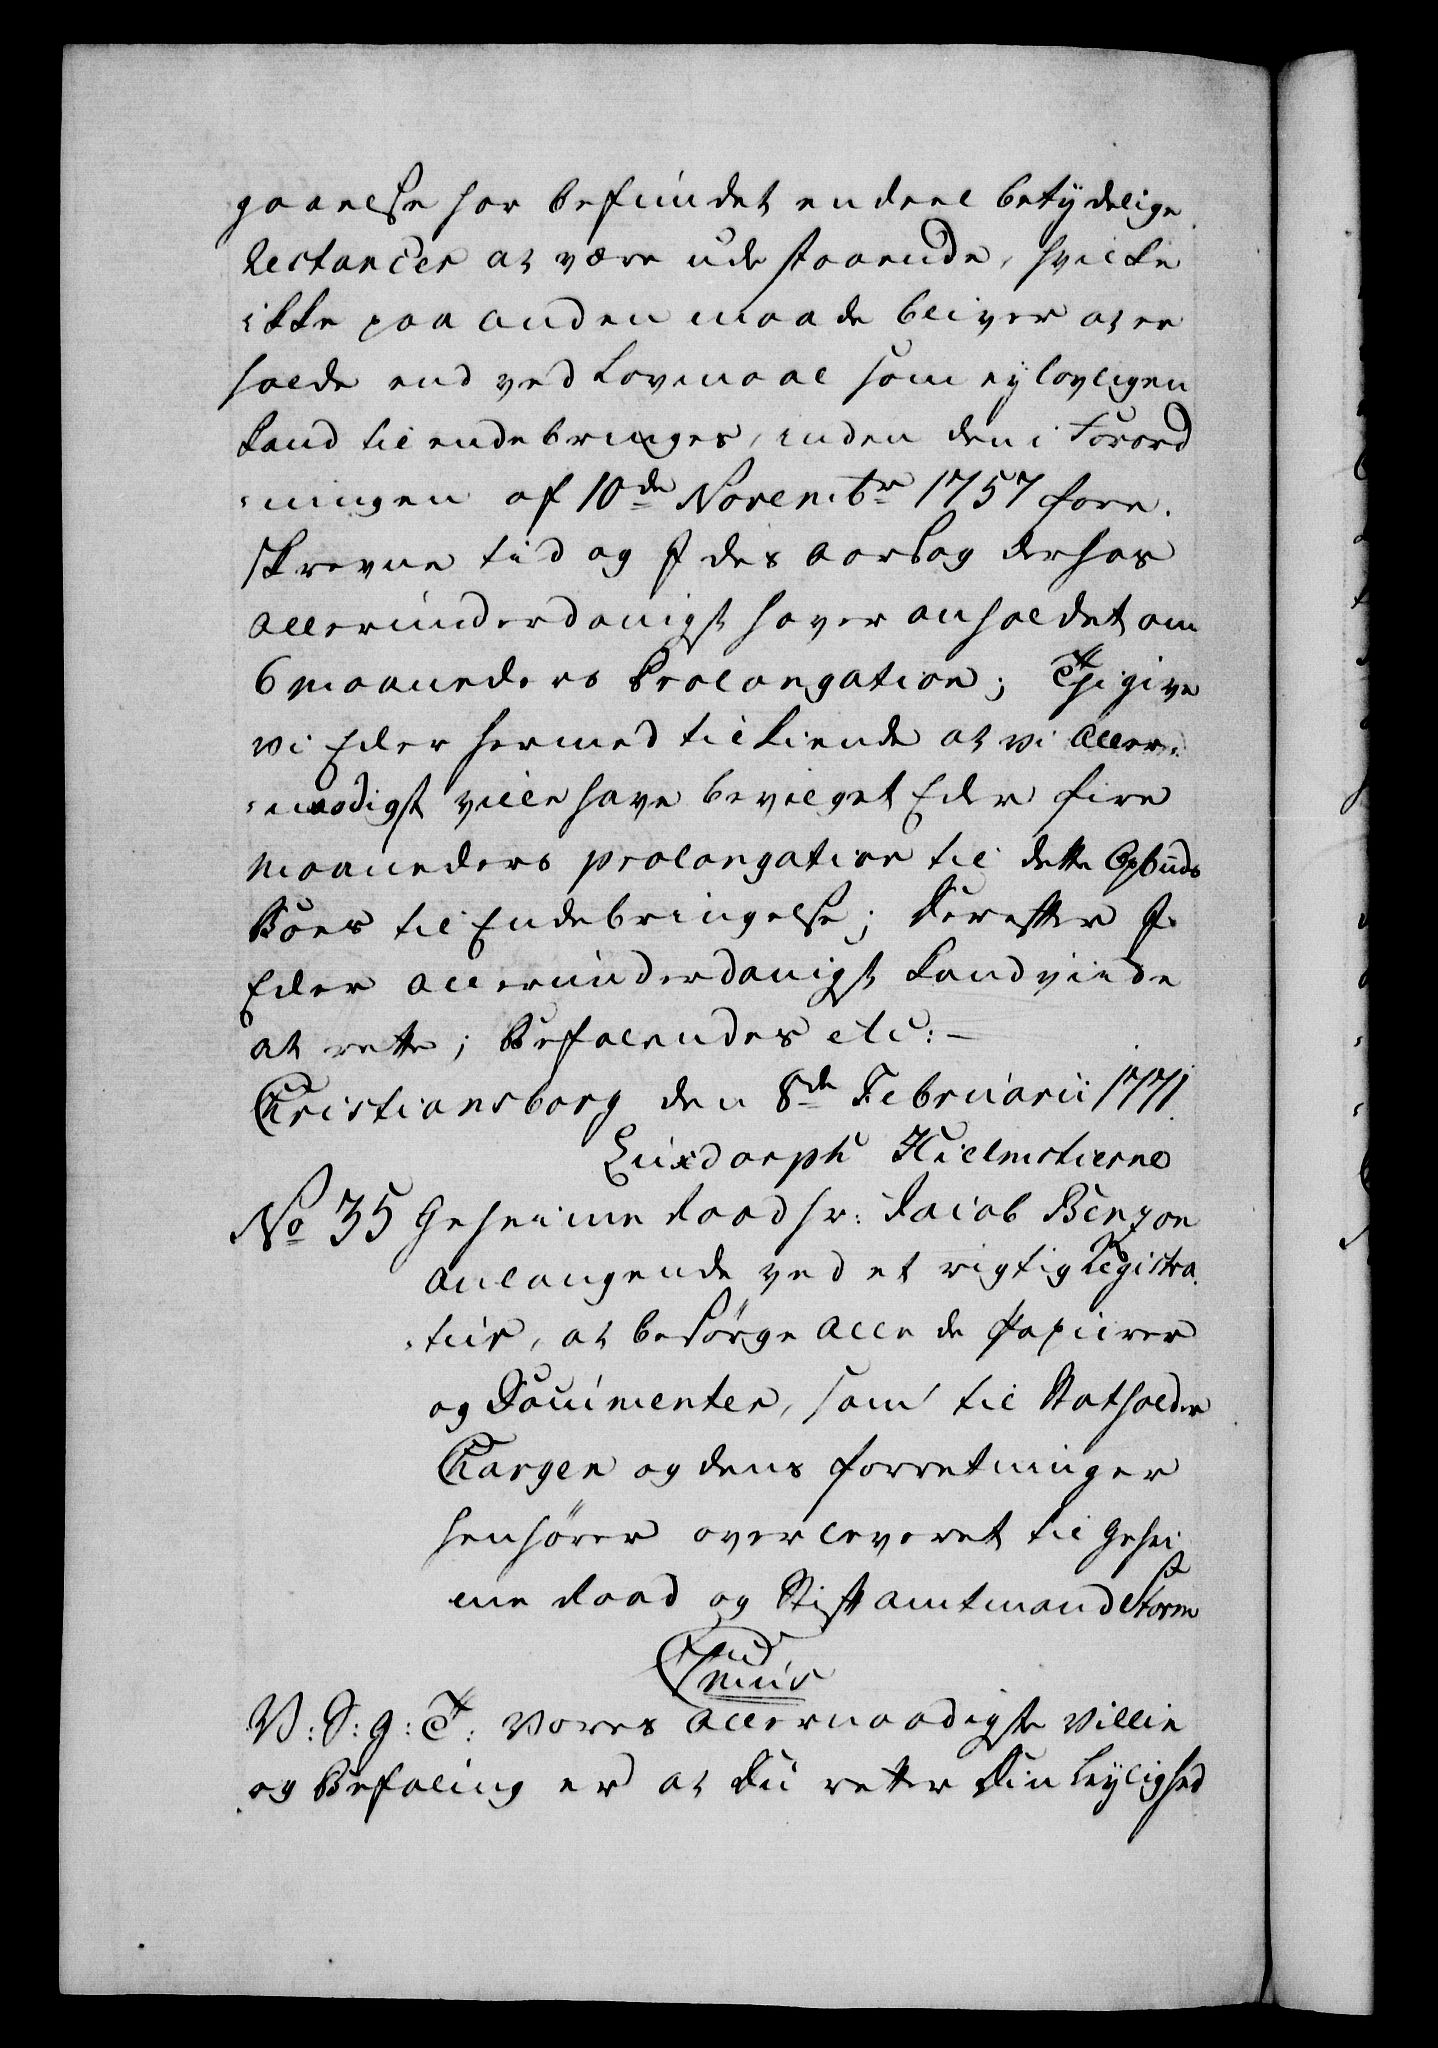 gaaelse har befundet endeel betydelige
Restancer at være udestaaende, hvilke
ikke paa anden maade bliver at er
holde end ved Lovmaal som ey lovligen
kand til endebringes, inden den i Forord
-ningen af 10de Novembr 1757 fore.
skrevne tid og I des aarsag derhos
allerunderdanigst haver anholdet om
6 maaneders Prolongation; Thi give
vi Eder hermed tilkiende at vi Aller-
-naadigst ville have bevilget Eder fire
maaneders prolongation til dette Opbuds
Boes til Endebringelse; Derefter I
Eder allerunderdanigst kand viide
at rette; Befalendes etc:-
Christiansborg den 8de Februarii 1771.
Luxdorph Hielmstierne
No 35 Geheime Raad hr: Jacob Benzon
anlangende ved et rigtig Registra-
-tur, at besørge alle de Papiirer
og Documenter, som til Statholder
Chargen og dens forretninger
henhører overleveret til Gehei
me Raad og Stiftamtmand Storm
C
V: S: G: T: Vores allernaadigste Villie
og Befaling er at du retter din Leylighed